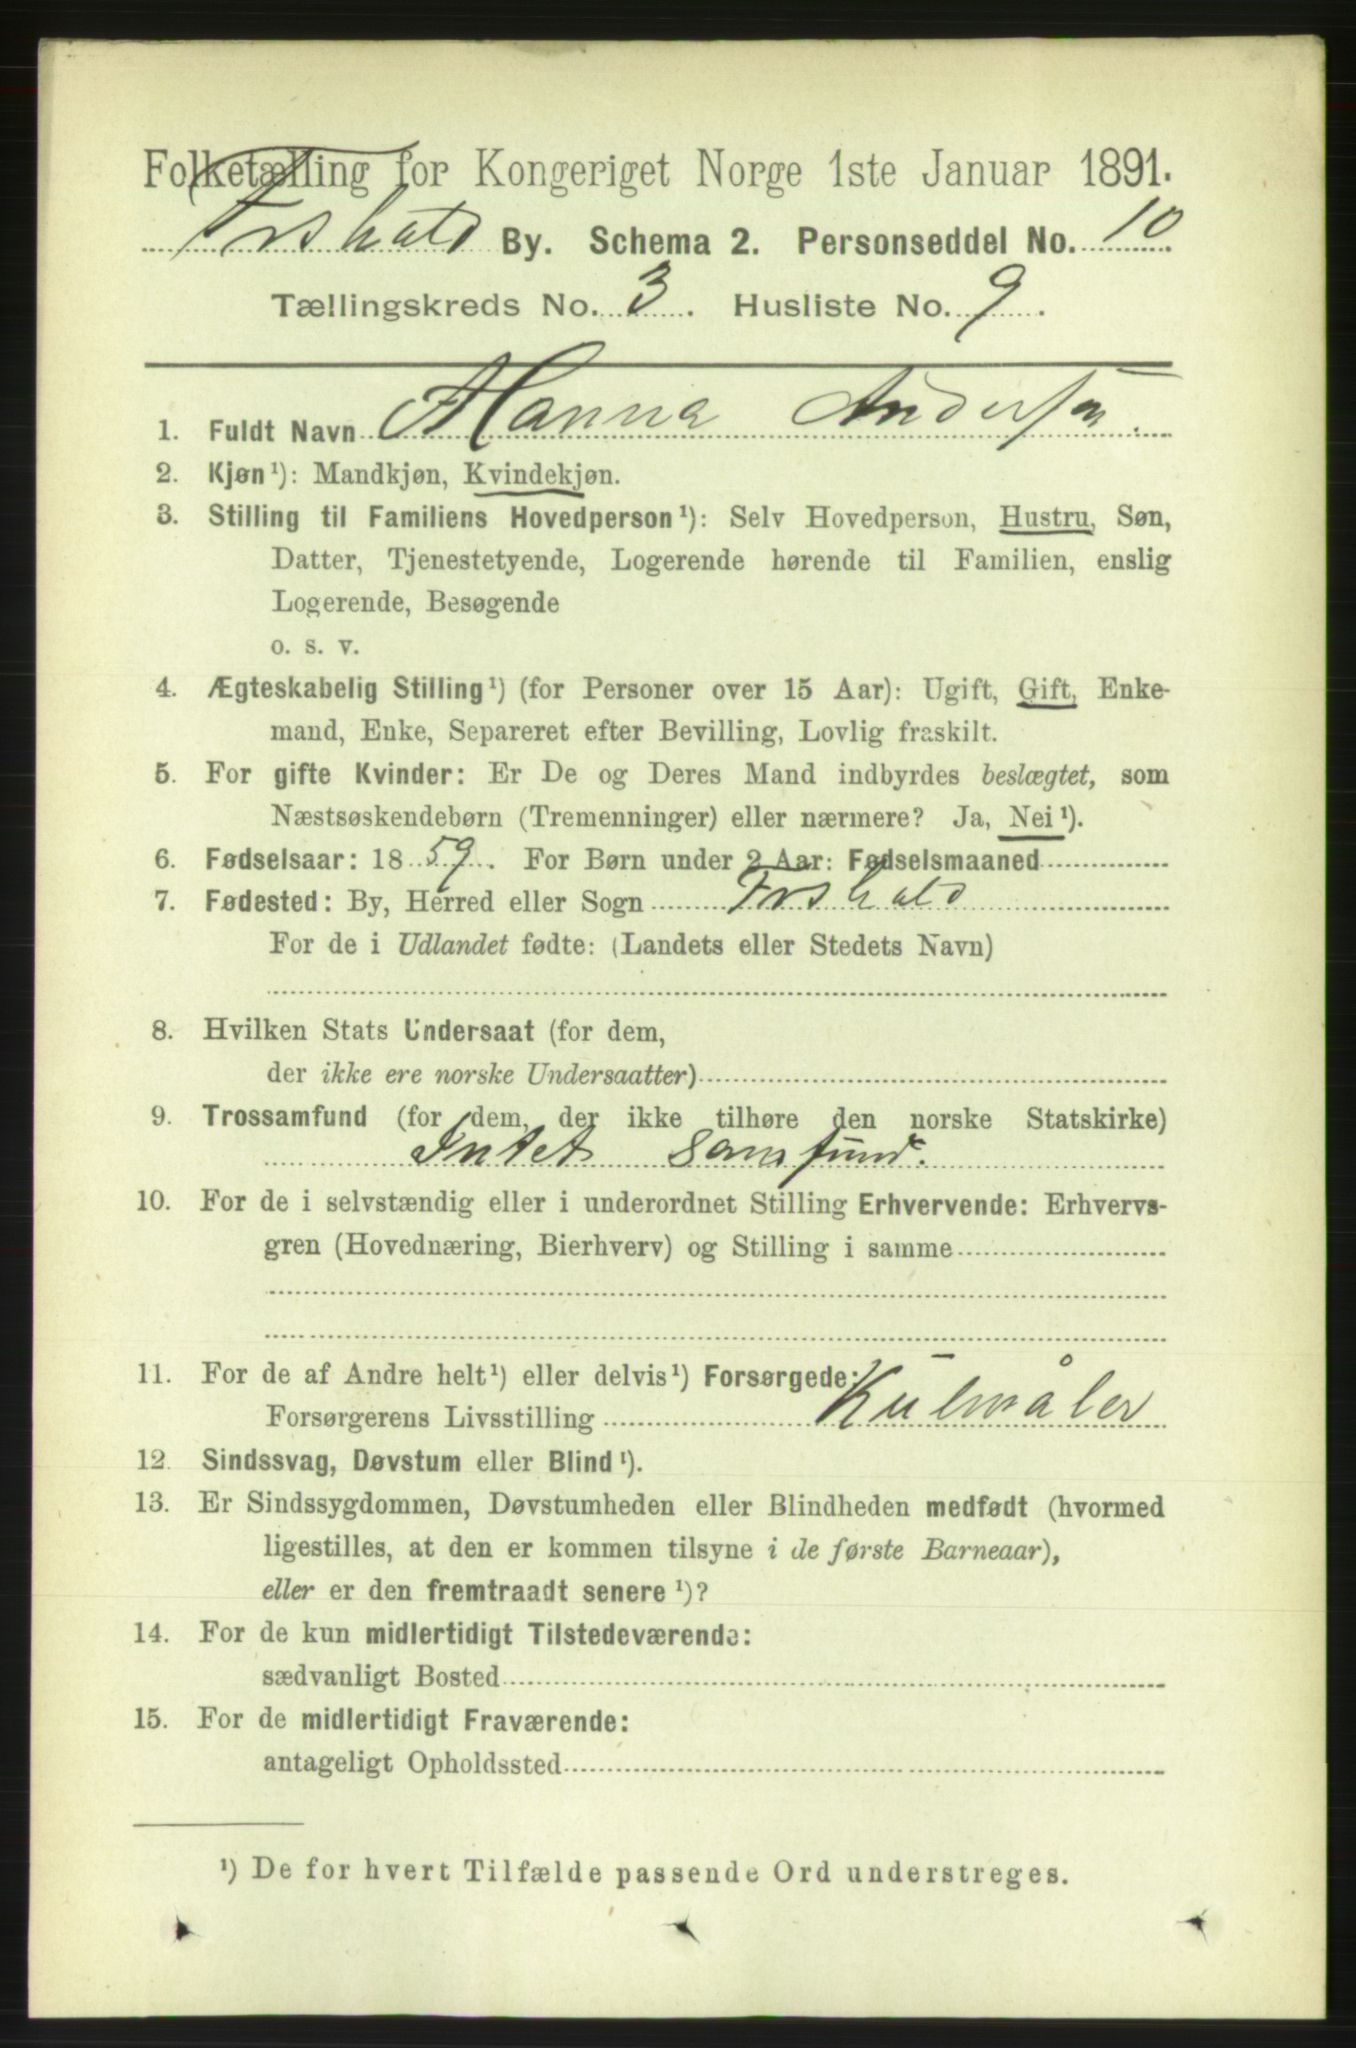 Folketælling for Kongeriget Norge 1ste Januar 1891.
Frshald By. Schema 2. Personseddel No. 10
Tællingskreds No. 3. Husliste No. 9.
1. Fuldt Navn Hanna Andersen.
2. Kjøn¹): Mandkjøn, Kvindekjøn.
3. Stilling til Familiens Hovedperson¹): Selv Hovedperson, Hustru, Søn,
Datter, Tjenestetyende, Logerende hørende til Familien, enslig
Logerende, Besøgende
o. s. v.
4. Ægteskabelig Stilling¹) (for Personer over 15 Aar): Ugift, Gift, Enke-
mand, Enke, Separeret efter Bevilling, Lovlig fraskilt.
5. For gifte Kvinder: Er De og Deres Mand indbyrdes beslægtet, som
Næstsøskendebørn (Tremenninger) eller nærmere? Ja, Nei¹).
6. Fødselsaar: 1859. For Børn under 2 Aar: Fødselsmaaned
7. Fødested: By, Herred eller Sogn Frshald
For de i Udlandet fødte: (Landets eller Stedets Navn)
8. Hvilken Stats Undersaat (for dem,
der ikke ere norske Undersaatter)
9. Trossamfund (for dem, der ikke tilhøre den norske Statskirke)
Intet Samfund.
10. For de i selvstændig eller i underordnet Stilling Erhvervende: Erhvervs-
gren (Hovednæring, Bierhverv) og Stilling i samme
11. For de af Andre helt¹) eller delvis¹) Forsørgede:
Forsørgerens Livsstilling Kulmåler
12. Sindssvag, Døvstum eller Blind¹).
13. Er Sindssygdommen, Døvstumheden eller Blindheden medfødt (hvormed
ligestilles, at den er kommen tilsyne i de første Barneaar),
eller er den fremtraadt senere¹)?
14. For de kun midlertidigt Tilstedeværende:
sædvanligt Bosted
15. For de midlertidigt Fraværende:
antageligt Opholdssted
¹) De for hvert Tilfælde passende Ord understreges.